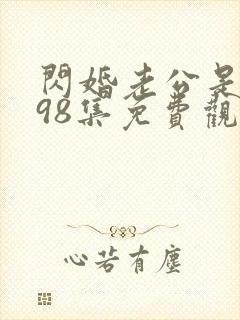 閃婚老公是
98集免費觀
心若有塵